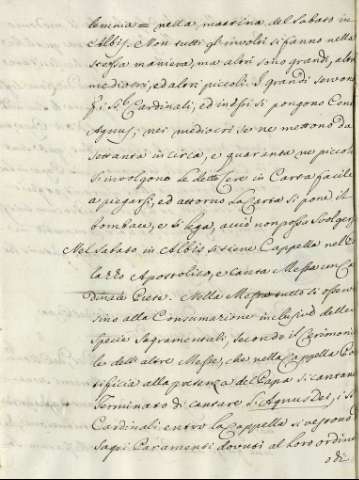 lennia = nella mattina del Sabato in
Albis. Non tutti gli involti si fanno nella
stessa maniera, ma altri sono grandi, altri
mediocri, ed altri piccoli. I grandi servono
p. i S. Cardinali, ed in essi si pongono Cento
Agnus; nei mediocri se ne mettono da
settanta in circa, e quaranta ne piccoli
Si involgono le dette Cere in Carta facile
a piegarsi, ed attorno la Carta si pone il
bombace, e si lega, acciò non possa sciolger
Nel Sabato in Albis si tiene Cappella nel Pa
lazzo Apostolico, e canta Messa un Car
dinale Prete. Nella Messa tutto si osser
sino alla Consumazione inclusive delle
Specie Sagramentali, secondo il Cerimonia
le dell'altre Messe, che nella Cappella Pon
tificia alla presenza del Papa si cantano
Terminato di cantare l'Agnus Dei, i S.
Cardinali entro la Cappella si vestono
Sagri Paramenti dovuti al Loro ordine
o di